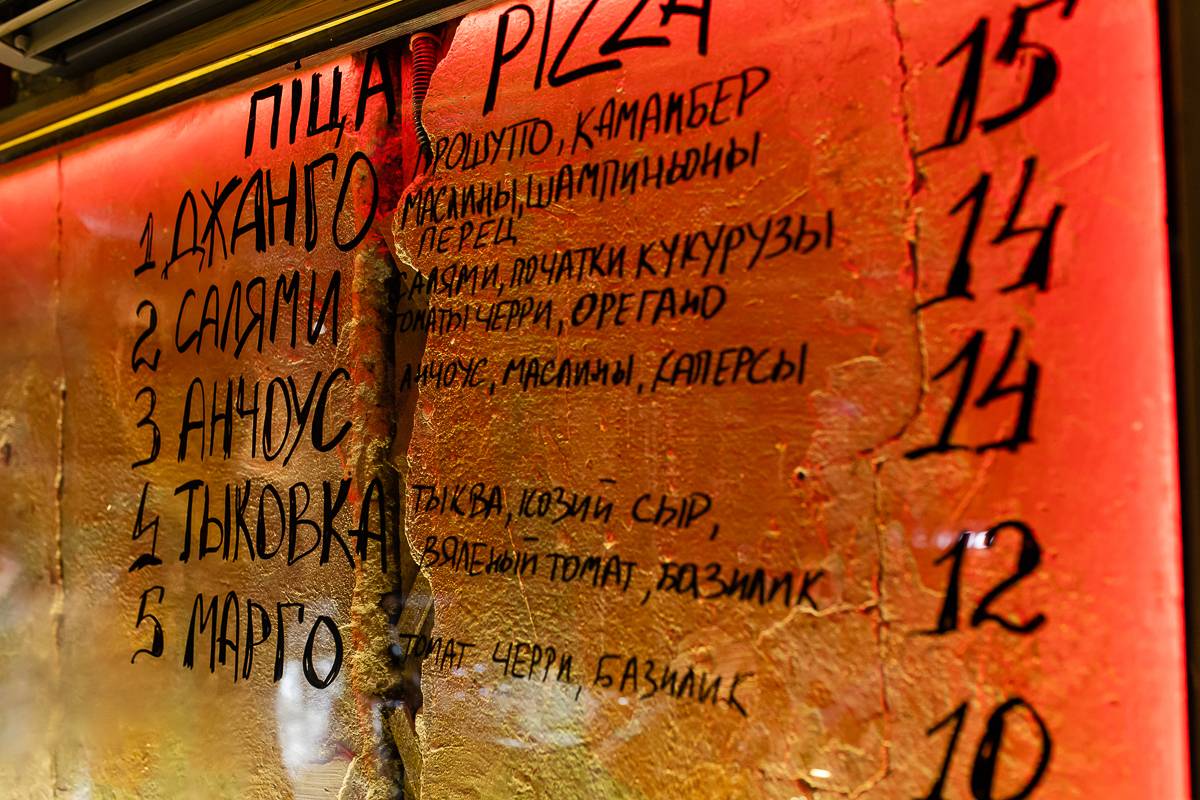 ПІЦА PIZZA
1 ДЖАНГО ПРОШУТТО, КАМАМБЕР 15
МАСЛИНЫ, ШАМПИНЬОНЫ
ПЕРЕЦ
2 САЛЯМИ САЛЯМИ, ПОЧАТКИ КУКУРУЗЫ 14
ТОМАТЫ ЧЕРРИ, ОРЕГАНО
3 АНЧОУС АНЧОУС, МАСЛИНЫ, КАПЕРСЫ 14
4 ТЫКОВКА ТЫКВА, КОЗИЙ СЫР, 12
ВЯЛЕНЫЙ ТОМАТ, БАЗИЛИК
5 МАРГО ТОМАТ ЧЕРРИ, БАЗИЛИК 10